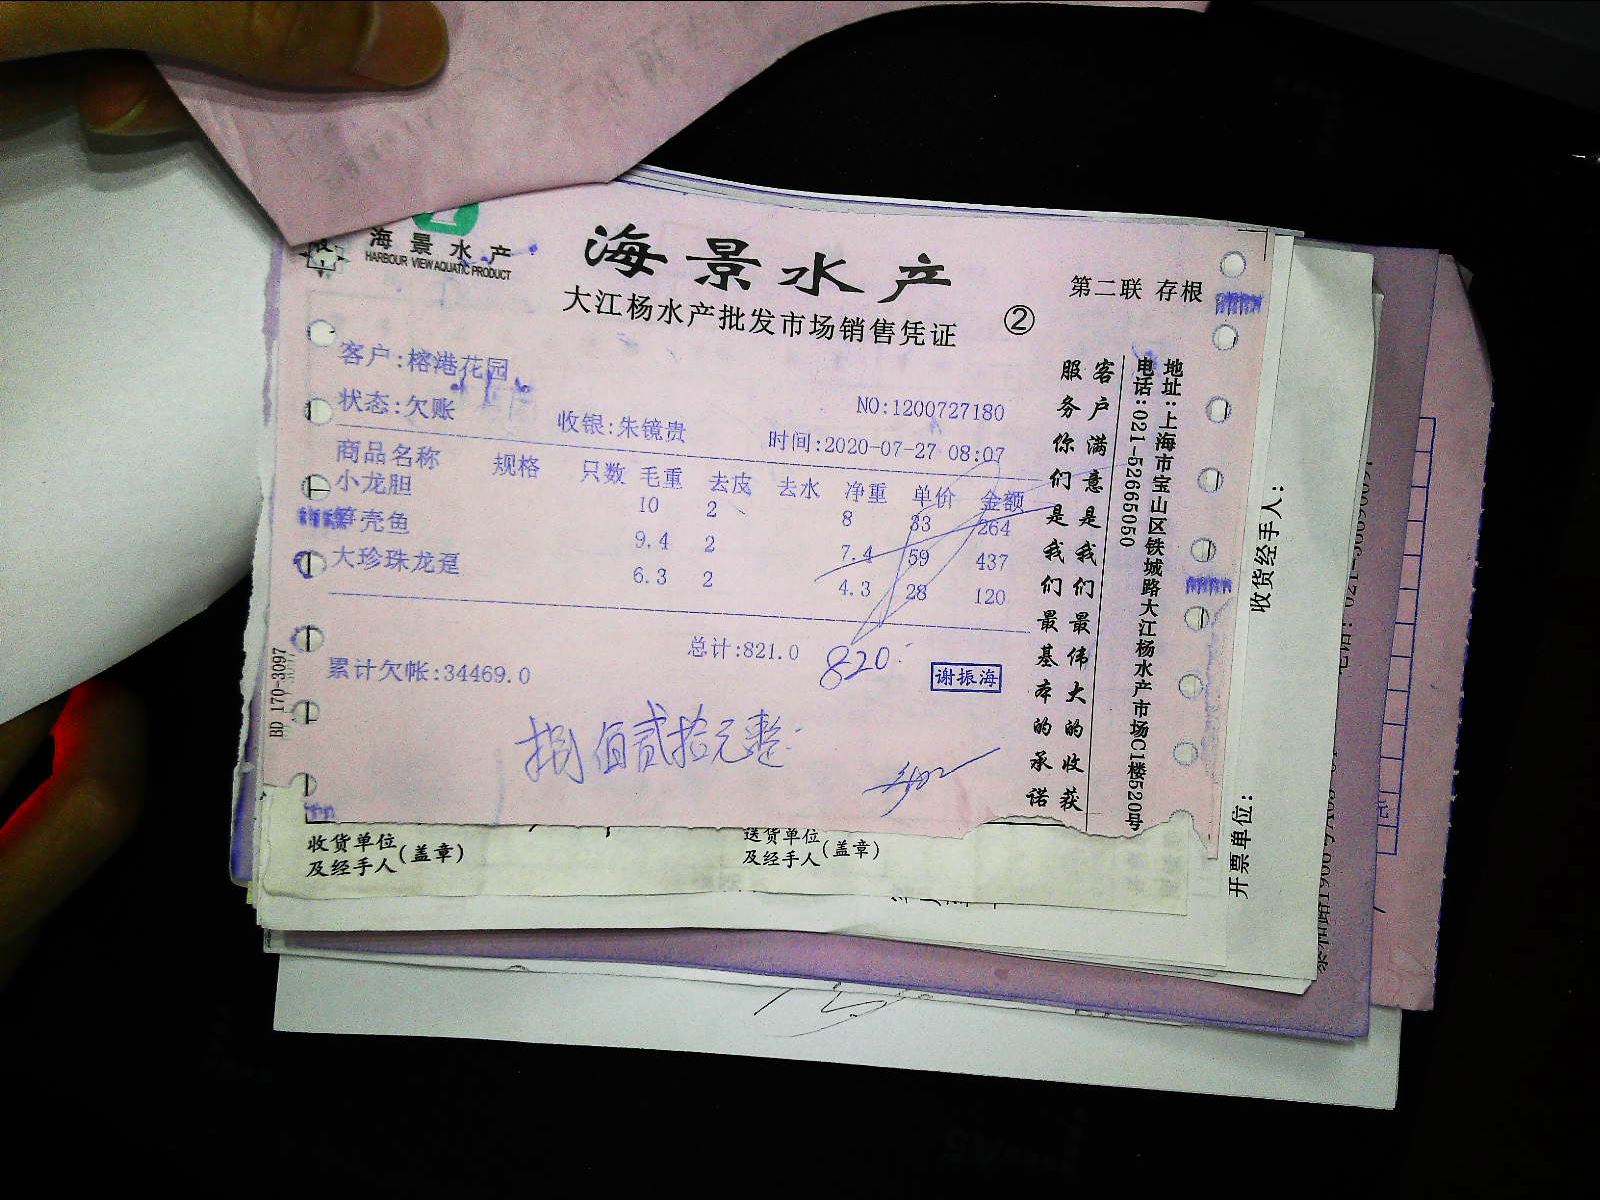 海景水产
HARBOUR VIEW AQUATIC PRODUCT
海景水产
大江杨水产批发市场销售凭证
②
第二联 存根
客户:榕港花园
状态:欠账
收银:朱镜贵
NO:1200727180
时间:2020-07-27 08:07
商品名称 规格 只数 毛重 去皮 去水 净重 单价 金额
小龙胆 10 2 8 33 264
壳鱼 9.4 2 7.4 59 437
大珍珠龙趸 6.3 2 4.3 28 120
总计:821.0
820.
累计欠帐:34469.0
谢振海
捌佰贰拾元整
客户满意是我们最伟大的收获
服务你们是我们最基本的承诺
地址:上海市宝山区铁城路大江杨水产市场C1楼520号
电话:021-52665050
BD 170-3097
收货单位及经手人(盖章)
送货单位及经手人(盖章)
收货经手人:
开票单位: